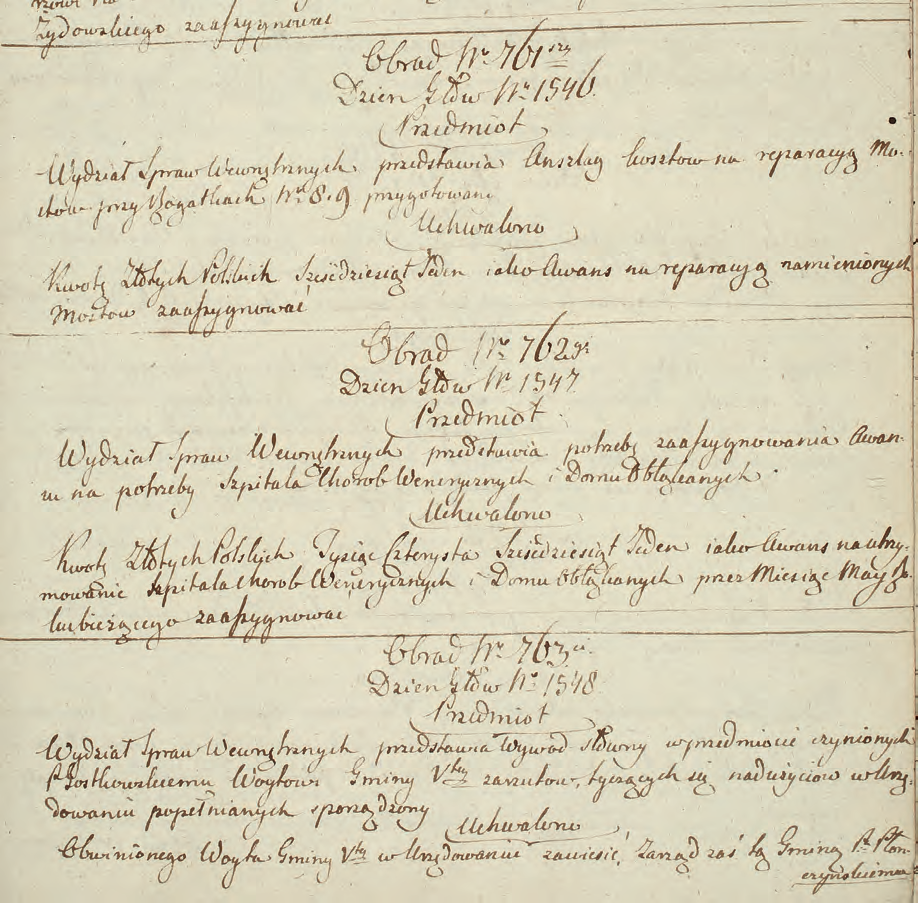 Żydowskiego zaassygnować
Obrad Nr 761szy
Dzien: Głów Nr 1546.
Przedmiot
Wydział Spraw Wewnętrznych przedstawia Anszlag kosztow na reparacyą Mo-
stow przy Rogatkach Nr 8 i 9 przygotowany
Uchwalono
Kwotę Złotych Polskich Sześćdziesiąt Jeden iako Awans na reparacyą namienionych
Mostow zaassygnować
Obrad Nr 762gi
Dzien Głów Nr 1547
Przedmiot
Wydział Spraw Wewnętrznych przedstawia potrzebę zaassygnowania Awan-
su na potrzeby Szpitala Chorob Wenerycznych i Domu Obłąkanych
Uchwalono
Kwotę Złotych Polskich Tysiąc Czterysta Sześćdziesiąt Jeden iako Awans na utrzy-
mowanie szpitala chorob Wenerycznych i Domu Obłąkanych przez Miesiąc May
bieżącego zaassygnować
Obrad Nr 763ci
Dzien Głów Nr 1548
Przedmiot
Wydział Spraw Wewnętrznych przedstawia Wywod słowny w przedmiocie czynionych
P. Gostkowskiemu Woytowi Gminy Vtey zarzutow, tyczących się nadużyciow w Urzę-
dowaniu popełnianych sporządzony
Uchwalono
Obwinionego Woyta Gminy Vtey w Urzędowaniu zawiesić, Zarząd zaś tą Gminą P. Płon-
czyńskiemu